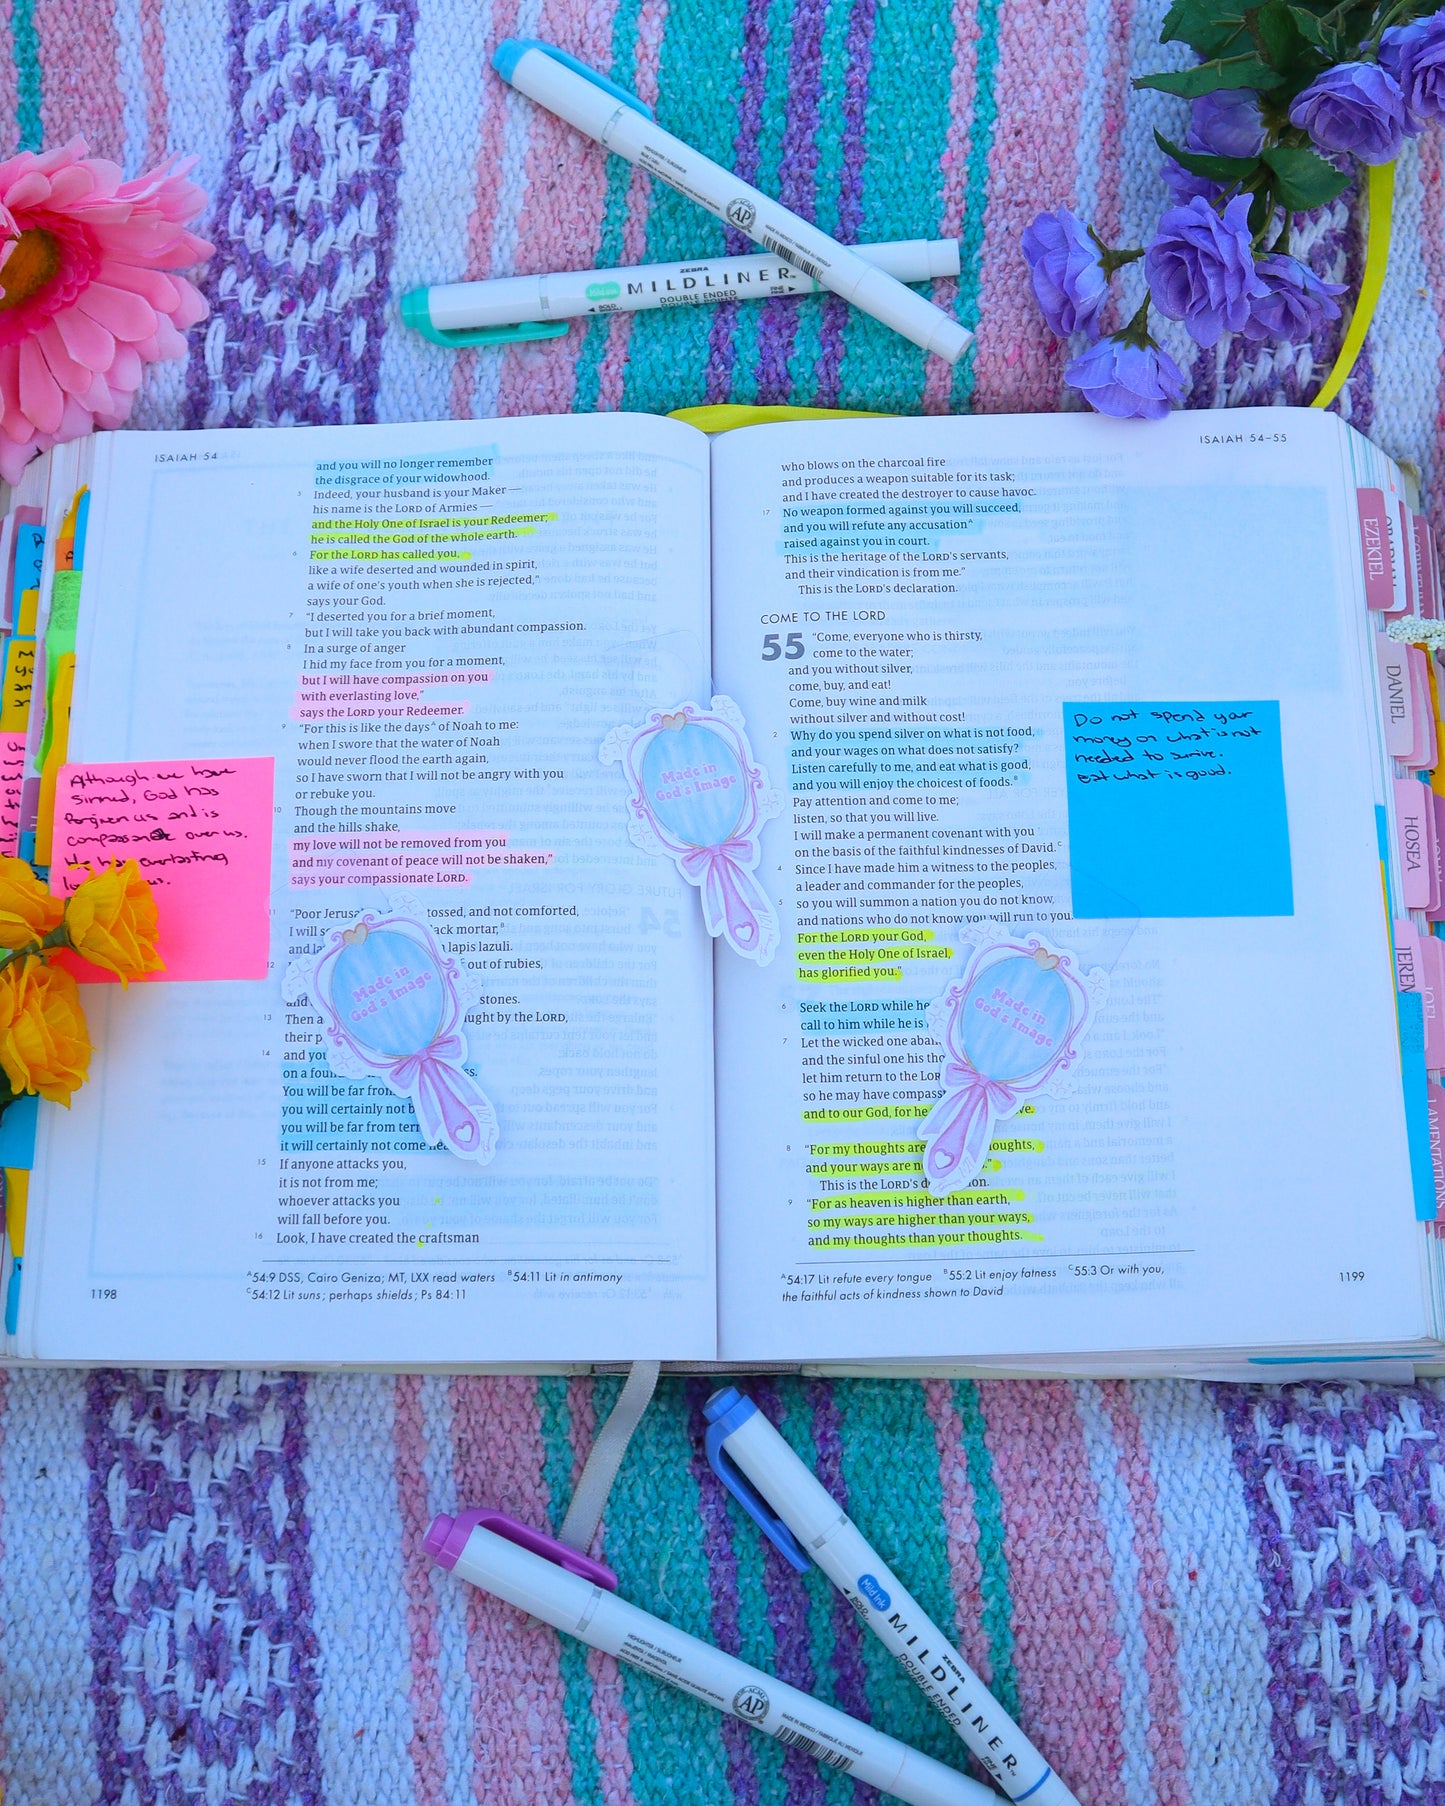 ZEBRA
Mild Ink MILDLINER™
DOUBLE ENDED
BOLD
FINE
AP
MADE IN MEXICO / FABRIQUÉ AU MEXIQUE
ISAIAH 54
and you will no longer remember
the disgrace of your widowhood.
5 Indeed, your husband is your Maker —
his name is the LORD of Armies —
and the Holy One of Israel is your Redeemer;
he is called the God of the whole earth.
6 For the LORD has called you,
like a wife deserted and wounded in spirit,
a wife of one's youth when she is rejected,”
says your God.
7 “I deserted you for a brief moment,
but I will take you back with abundant compassion.
8 In a surge of anger
I hid my face from you for a moment,
but I will have compassion on you
with everlasting love,”
says the LORD your Redeemer.
9 “For this is like the days A of Noah to me:
when I swore that the water of Noah
would never flood the earth again,
so I have sworn that I will not be angry with you
or rebuke you.
10 Though the mountains move
and the hills shake,
my love will not be removed from you
and my covenant of peace will not be shaken,”
says your compassionate LORD.
11 “Poor tossed, and not comforted,
I will mortar, B
and lapis lazuli.
12 out of rubies,
and stones.
13 Then by the LORD,
their
14 and you
on a
You will be far from
you will certainly not
you will be far from
it will certainly not come
15 If anyone attacks you,
it is not from me;
whoever attacks you
will fall before you.
16 Look, I have created the craftsman
A 54:9 DSS, Cairo Geniza; MT, LXX read waters B 54:11 Lit in antimony
C 54:12 Lit suns; perhaps shields; Ps 84:11
1198
Although we have
sinned, God has
forgiven us and is
compassionate over us.
He has everlasting
us.
Made in
God's Image
ISAIAH 54–55
who blows on the charcoal fire
and produces a weapon suitable for its task;
and I have created the destroyer to cause havoc.
17 No weapon formed against you will succeed,
and you will refute any accusation A
raised against you in court.
This is the heritage of the LORD's servants,
and their vindication is from me.”
This is the LORD's declaration.
COME TO THE LORD
55 “Come, everyone who is thirsty,
come to the water;
and you without silver,
come, buy, and eat!
Come, buy wine and milk
without silver and without cost!
2 Why do you spend silver on what is not food,
and your wages on what does not satisfy?
Listen carefully to me, and eat what is good,
and you will enjoy the choicest of foods. B
3 Pay attention and come to me;
listen, so that you will live.
I will make a permanent covenant with you
on the basis of the faithful kindnesses of David. C
4 Since I have made him a witness to the peoples,
a leader and commander for the peoples,
5 so you will summon a nation you do not know,
and nations who do not know you will run to you.
For the LORD your God,
even the Holy One of Israel,
has glorified you.”
6 Seek the LORD while he
call to him while he is
7 Let the wicked one
and the sinful one his
let him return to the
so he may have
and to our God, for he
8 “For my thoughts are
and your ways are
This is the LORD's
9 “For as heaven is higher than earth,
so my ways are higher than your ways,
and my thoughts than your thoughts.
A 54:17 Lit refute every tongue B 55:2 Lit enjoy fatness C 55:3 Or with you,
the faithful acts of kindness shown to David
1199
Made in
God's Image
Made in
God's Image
Do not spend your
money on what is not
needed to survive.
eat what is good.
EZEKIEL
OBADIAH
DANIEL
HOSEA
JOEL
LAMENTATIONS
AP
Mild Ink MILDLINER™
ZEBRA
DOUBLE ENDED
BOLD
FINE
MADE IN MEXICO / FABRIQUÉ AU MEXIQUE